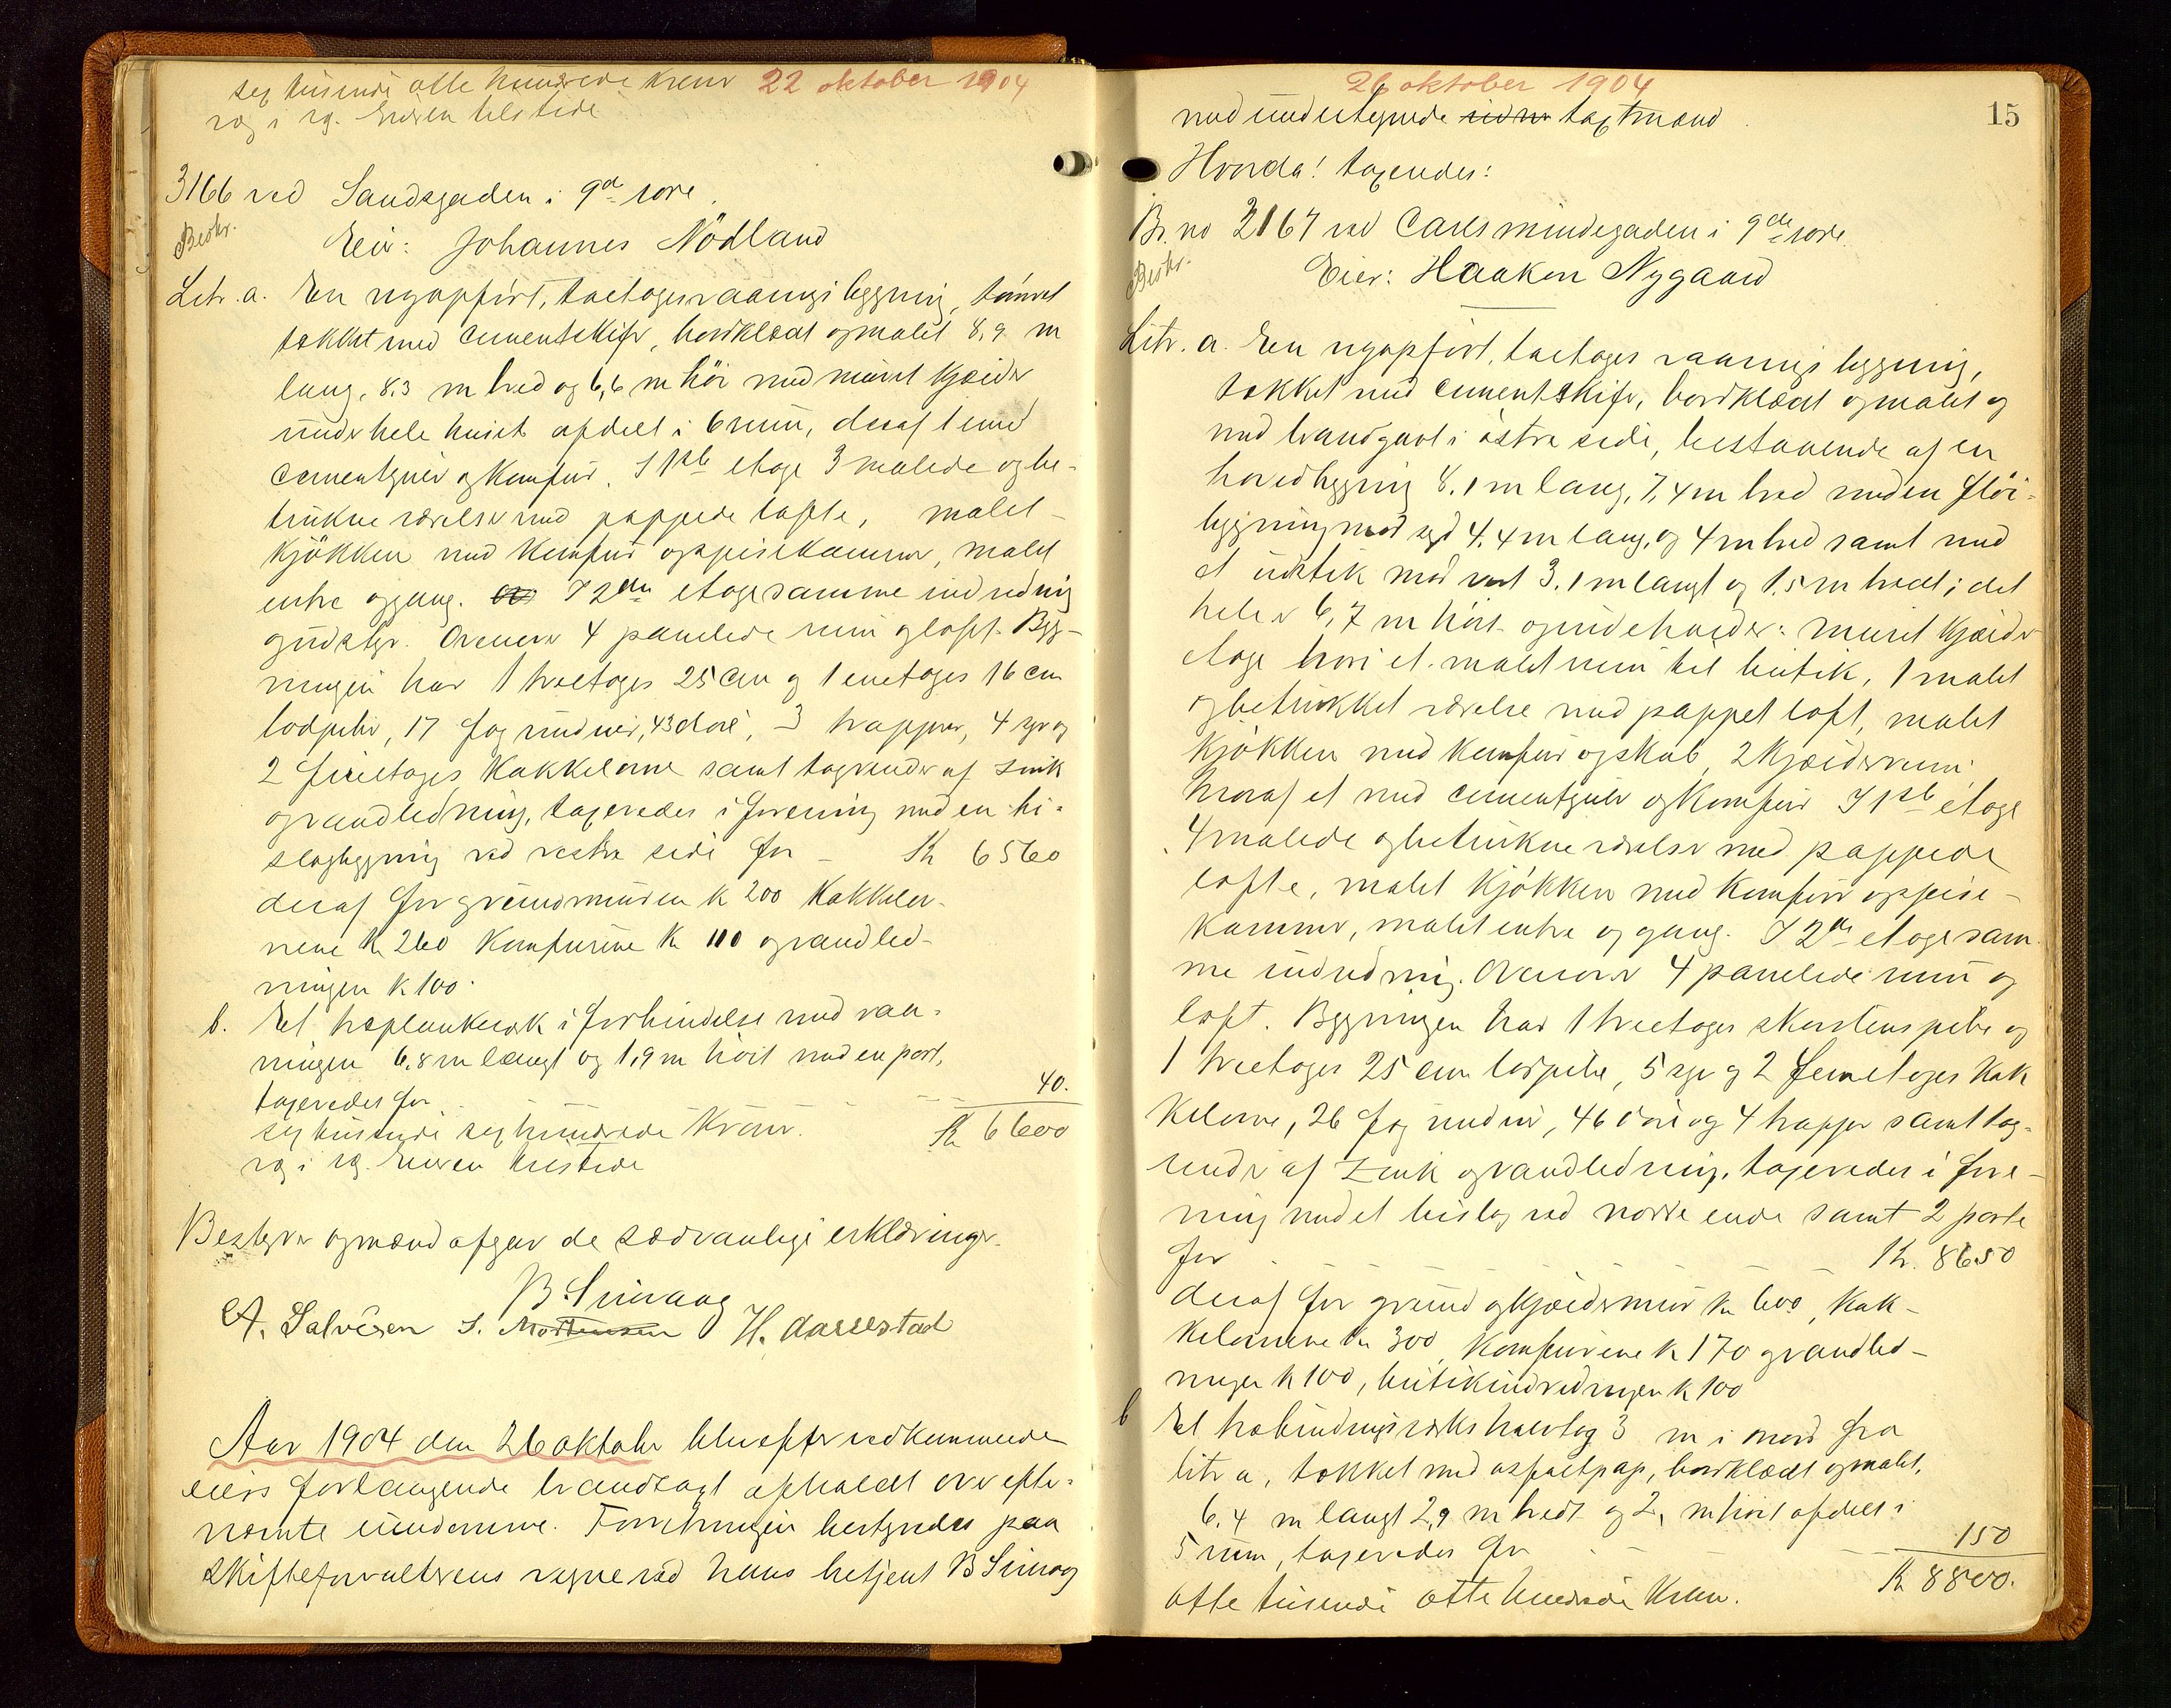 sex tusende otte hundrede kroner 22 oktober 1904
rg i rg. Eieren tilstede
3166 ved Sandsgaden i 9de rode.
Beskr.
Eier: Johannes Nödland
Litr. a. En nyopfört, toetages vaaningsbygning, tömret
tækket med cementskifer, bordklædt og malet 8,9 m
lang, 8.3 m bred og 6,6 m höi med muret kjælder
under hele huset afdelt i 6 rum, deraf 1 med
cementgulv og komfur. I 1ste etage 3 malede og be-
trukne værelser med pappede lofte, malet
kjökken med komfur og spisekammer, malet
entre og gang. I 2den etage samme indredning
og udstyr. Ovenover 4 panelede rum og loft. Byg-
ningen har 1 treetages 25 cm og 1 enetages 16 cm
lodpibe, 17 fag vinduer, 43 döre, 3 trapper, 4 nye og
2 fireetages kakkelovne samt tagrender af zink
og vandledning, taxeredes i forening med en bi-
slagbygning ved vestre side for - Kr 6560
deraf for grundmuren kr 200 kakkelov-
nene kr 260 komfurene kr 110 og vandled-
ningen kr 100.
b. Et træplankeværk i forbindelse med vaa-
ningen 6.8 m langt og 1,9 m höit med en port,
taxeredes for 40.
sex tusende sex hundrede kroner. Kr 6600
rg i rg. Eieren tilstede
Bestyrer og mænd afgav de sædvanlige erklæringer.
B. Simaog
A. Salvesen S. Mortensen H. Aarrestad
Aar 1904 den 26 oktober blev efter vedkommende
eiers forlangende brandtaxt afholdt over efter-
nævnte eiendomme. Forretningen bestyredes paa
skifteforvalterens vegne ved hans betjent B Simaog
26 oktober 1904
15
med undertegnede taxtmænd.
Hvorda! taxeredes:
Br. no 3167 ved Carlsmindegaden i 9de rode.
Beskr.
Eier: Haakon Nygaard
Litr. a. En nyopfört, toetages vaanings bygning,
tækket med cementskifer, bordklædt og malet og
med brandgavl i östre side, bestaaende af en
hovedbygning 8.1 m lang, 7,4 m bred med en flöi-
bygning mod syd 4,4 m lang, og 4 m bred samt med
et udstik mod vest 3.1 m langt og 1.5 m bredt; det
hele er 6,7 m höit og indeholder: muret kjælder
etage hvori et malet rum til butik, 1 malet
og betrukket værelse med pappet loft, malet
kjökken med komfur og skab, 2 kjælderrum
hvoraf et med cementgulv og komfur I 1ste etage
4 malede og betrukne værelser med pappede
lofte, malet kjökken med komfur og spise-
kammer, malet entre og gang. I 2den etage sam-
me indredning. Ovenover 4 panelede rum og
loft. Bygningen har 1 treetages skorstenspibe og
1 treetages 25 cm lodpibe, 5 nye og 2 femetages kak
kelovne, 26 fag vinduer, 46 döre og 4 trapper samt tag-
render af zink og vandledning, taxeredes i fore-
ning med et bislag ved nordre ende samt 2 porte
for Kr. 8650
deraf for grund og kjældermur kr 600, kak-
kelovnene kr 300, komfurene kr 170 og vandled-
ningen kr 100, butikindredningen kr 100
b Et træbindingsværks halvtag 3 m i nord fra
litr a, tækket med asfaltpap, bordklædt og malet,
6.4 m langt 2,9 m bredt og 2, m höit afdelt i
5 rum, taxeredes for 150
otte tusende otte hundrede kroner. Kr 8800.